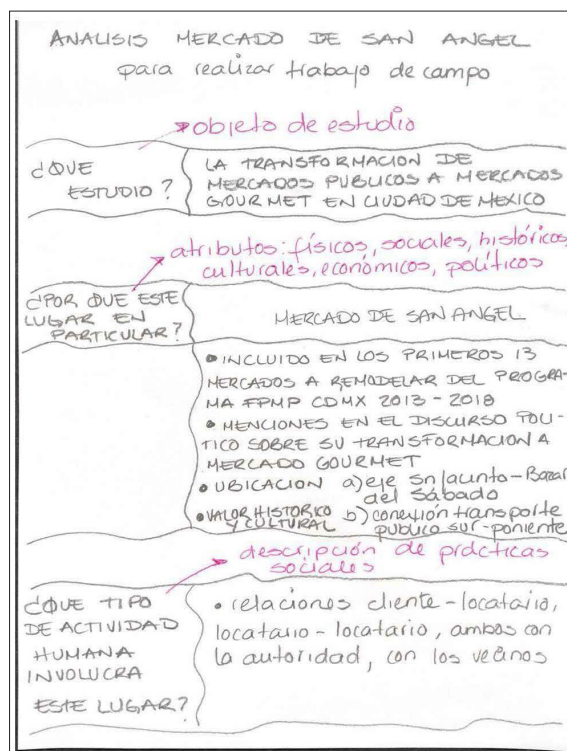 ANALISIS MERCADO DE SAN ANGEL
para realizar trabajo de campo
objeto de estudio
¿QUE
ESTUDIO?
LA TRANSFORMACION DE
MERCADOS PUBLICOS A MERCADOS
GOURMET EN CIUDAD DE MEXICO
atributos: físicos, sociales, históricos,
culturales, económicos, políticos
¿POR QUE ESTE
LUGAR EN
PARTICULAR?
MERCADO DE SAN ANGEL
• INCLUIDO EN LOS PRIMEROS 13
MERCADOS A REMODELAR DEL PROGRA-
MA FPMP CDMX 2013-2018
• MENCIONES EN EL DISCURSO POLI-
TICO SOBRE SU TRANSFORMACION A
MERCADO GOURMET
• UBICACION a) eje Sn Jacinto-Bazar
del Sábado
• VALOR HISTORICO
Y CULTURAL
b) conexión transporte
publico sur-poniente
descripción de prácticas
sociales
¿QUE TIPO
DE ACTIVIDAD
HUMANA
INVOLUCRA
ESTE LUGAR?
• relaciones cliente-locatario,
locatario-locatario, ambos con
la autoridad, con los vecinos